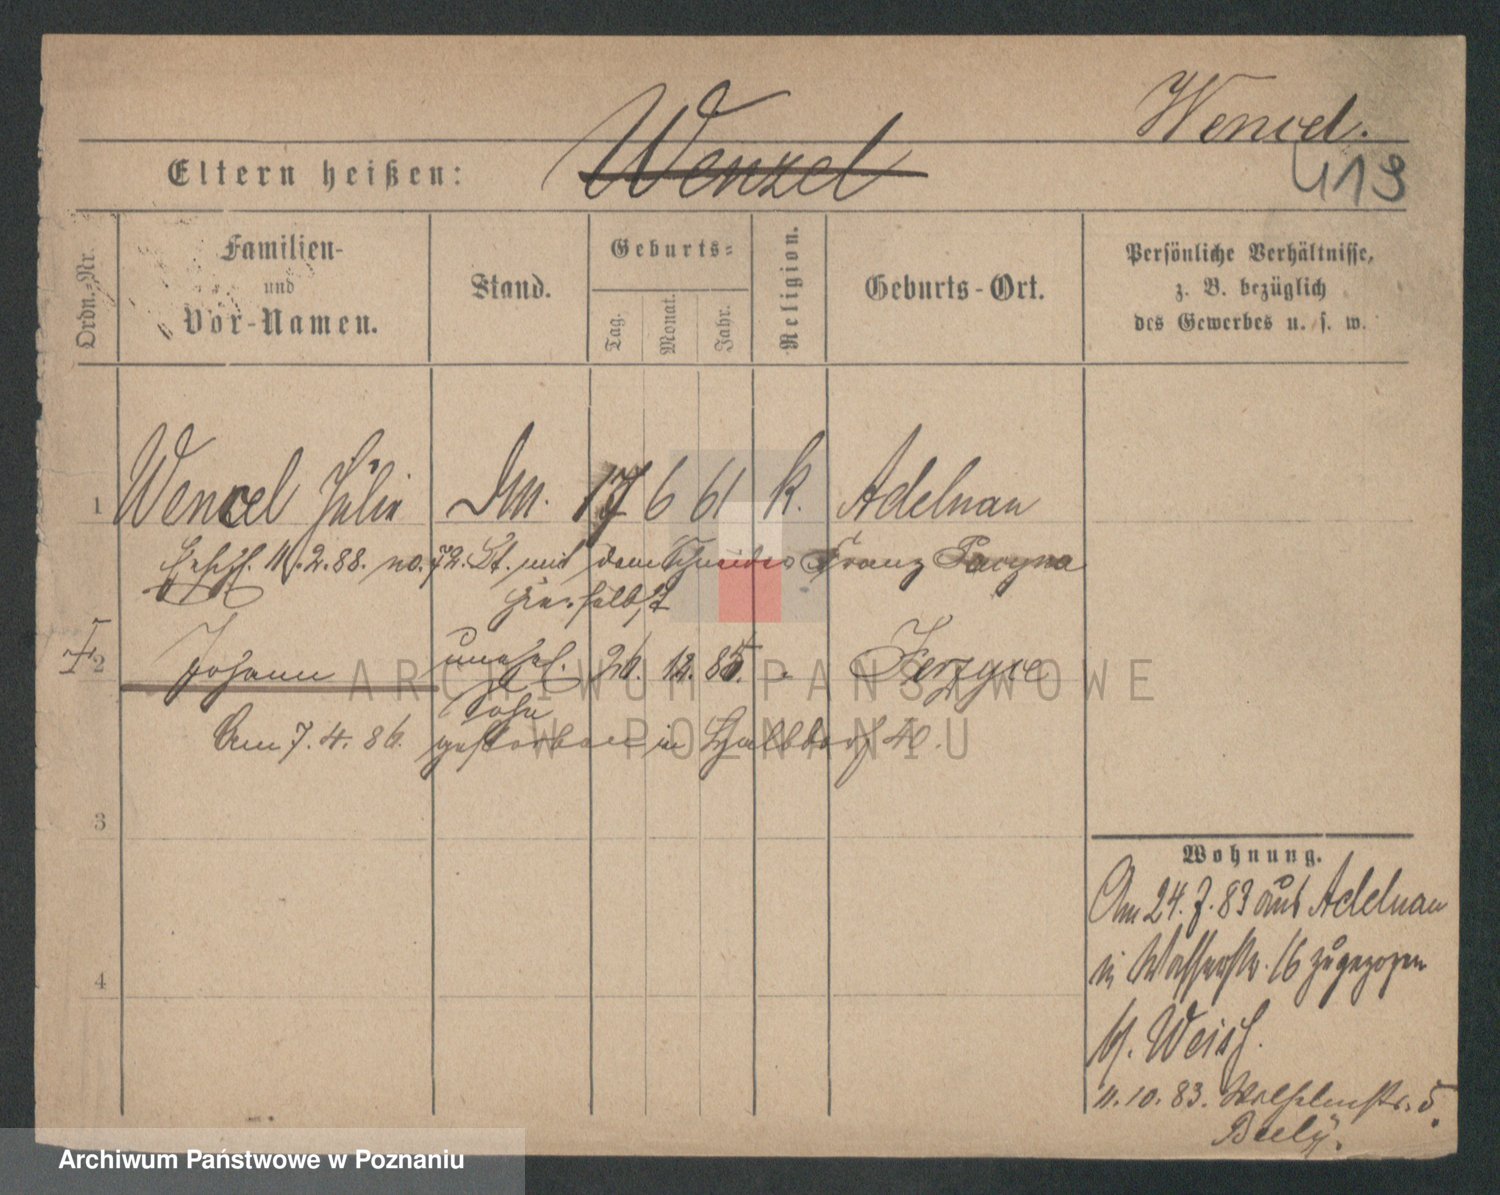 Wencel.
Eltern heißen: Wenzel
419
Ordn.-Nr.
Familien-
und
Vor-Namen.
Stand.
Geburts-
Tag.
Monat.
Jahr.
Religion.
Geburts-Ort.
Persönliche Verhältnisse,
z. B. bezüglich
des Gewerbes u. s. w.
1 Wencel Julie Dm. 17 6 61 k. Adelnau
11.2.88. no. 72. St. mit dem Schneider Franz
hierselbst
2 Johann unehel. 26. 12. 85. Jerzyce
Sohn
Am 7. 4. 86. gestorben in 40.
3
4
Wohnung.
Am 24. 7. 83 aus Adelnau
in Wasserstr. 16 zugezogen
b/. Weiss.
11.10.83. Wilhelmstr. 5.
ARCHIWUM PAŃSTWOWE
W POZNANIU
Archiwum Państwowe w Poznaniu